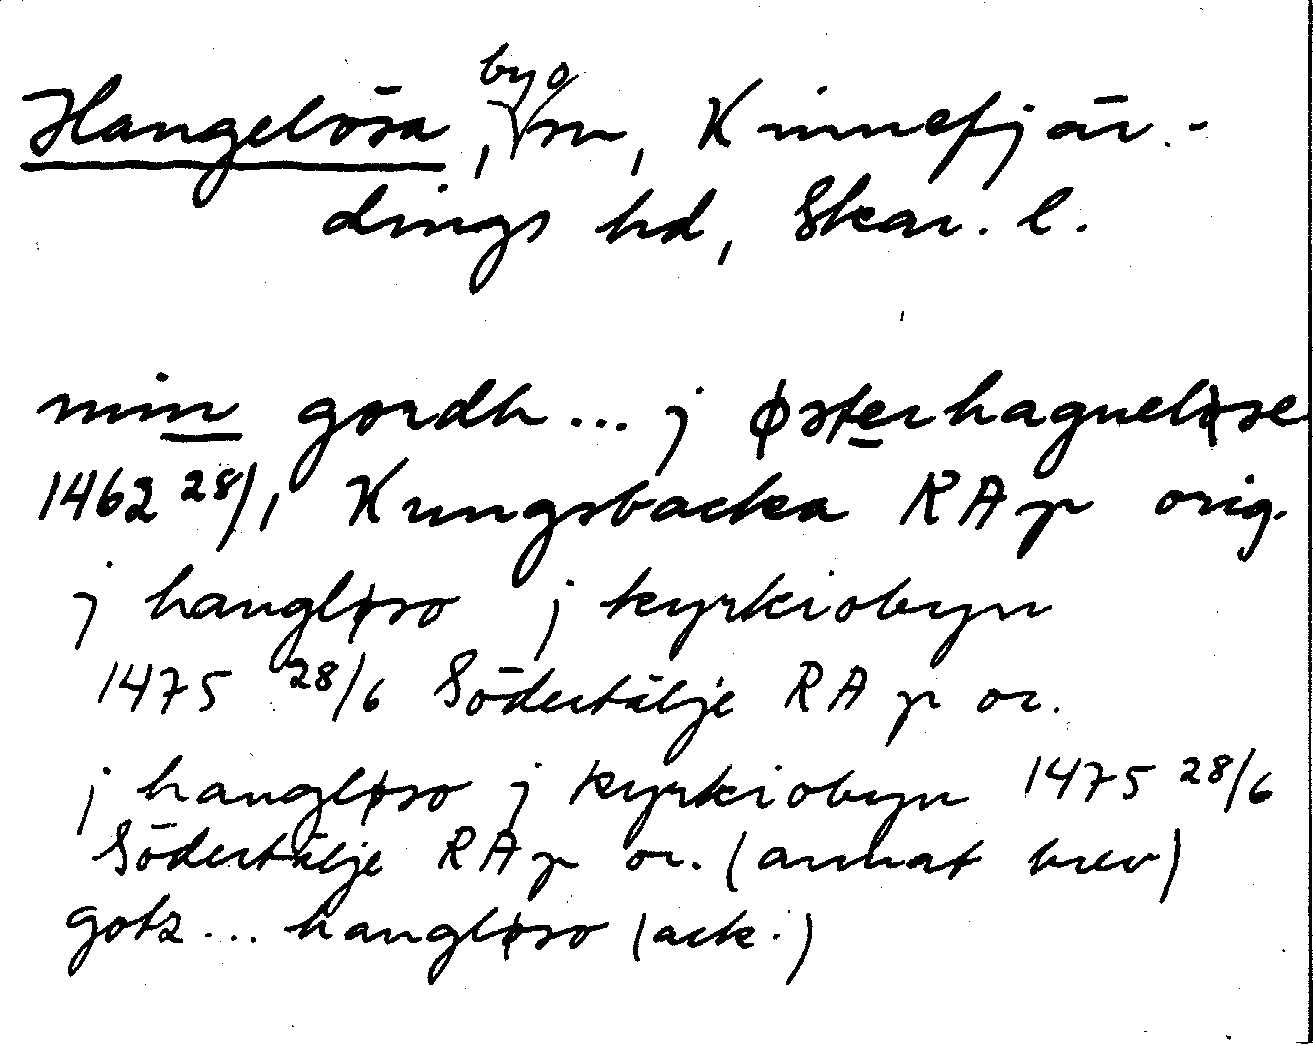 Hangelösa, by o sn, Kinnefjär-
dings hd, Skar. l.
min gordh ... j østerhagueløse
1462 28/1, Kungsbacka RAp orig.
j hangløso j kyrkiobyn
1475 28/6 Södertälje RAp or.
j hangløso j kyrkiobyn 1475 28/6
Södertälje RAp or. (annat brev)
gotz ... hangløso (ack.)